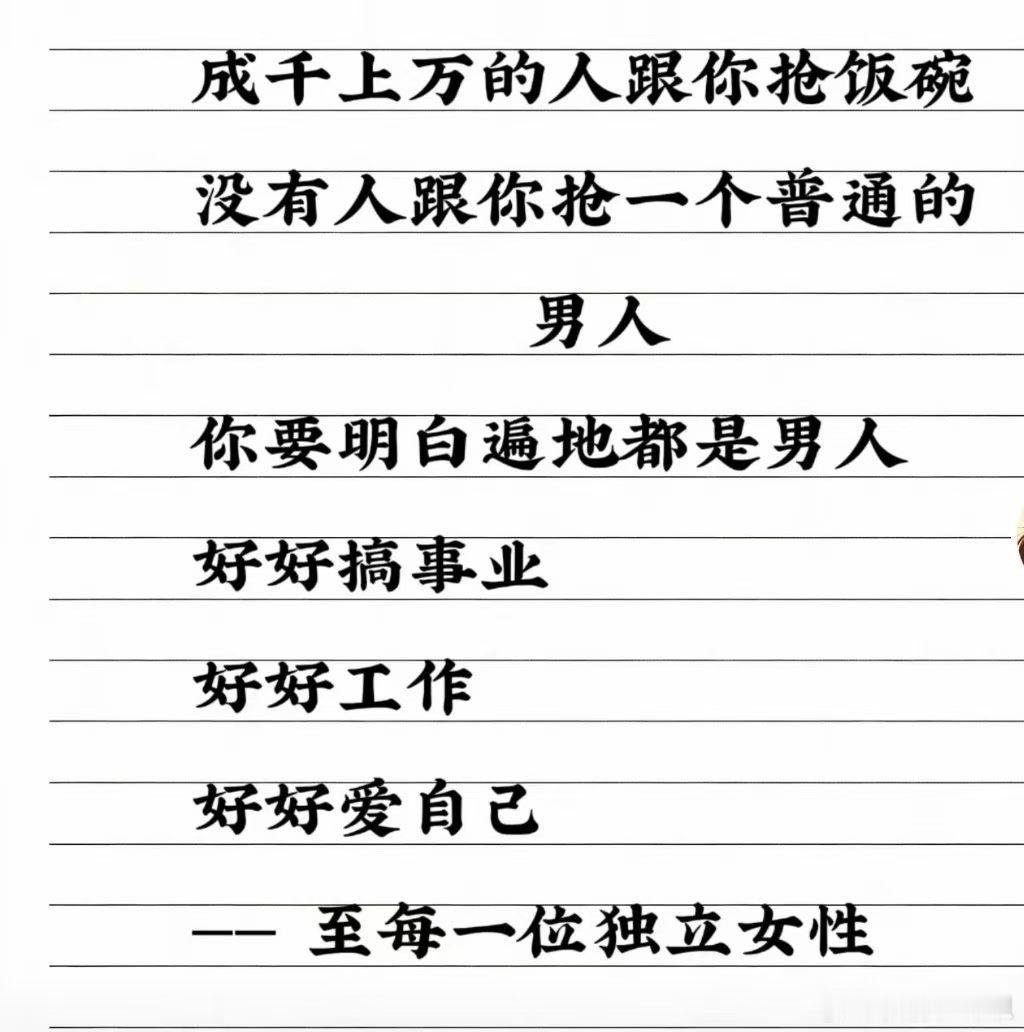 成千上万的人跟你抢饭碗
没有人跟你抢一个普通的
男人
你要明白遍地都是男人
好好搞事业
好好工作
好好爱自己
—— 至每一位独立女性